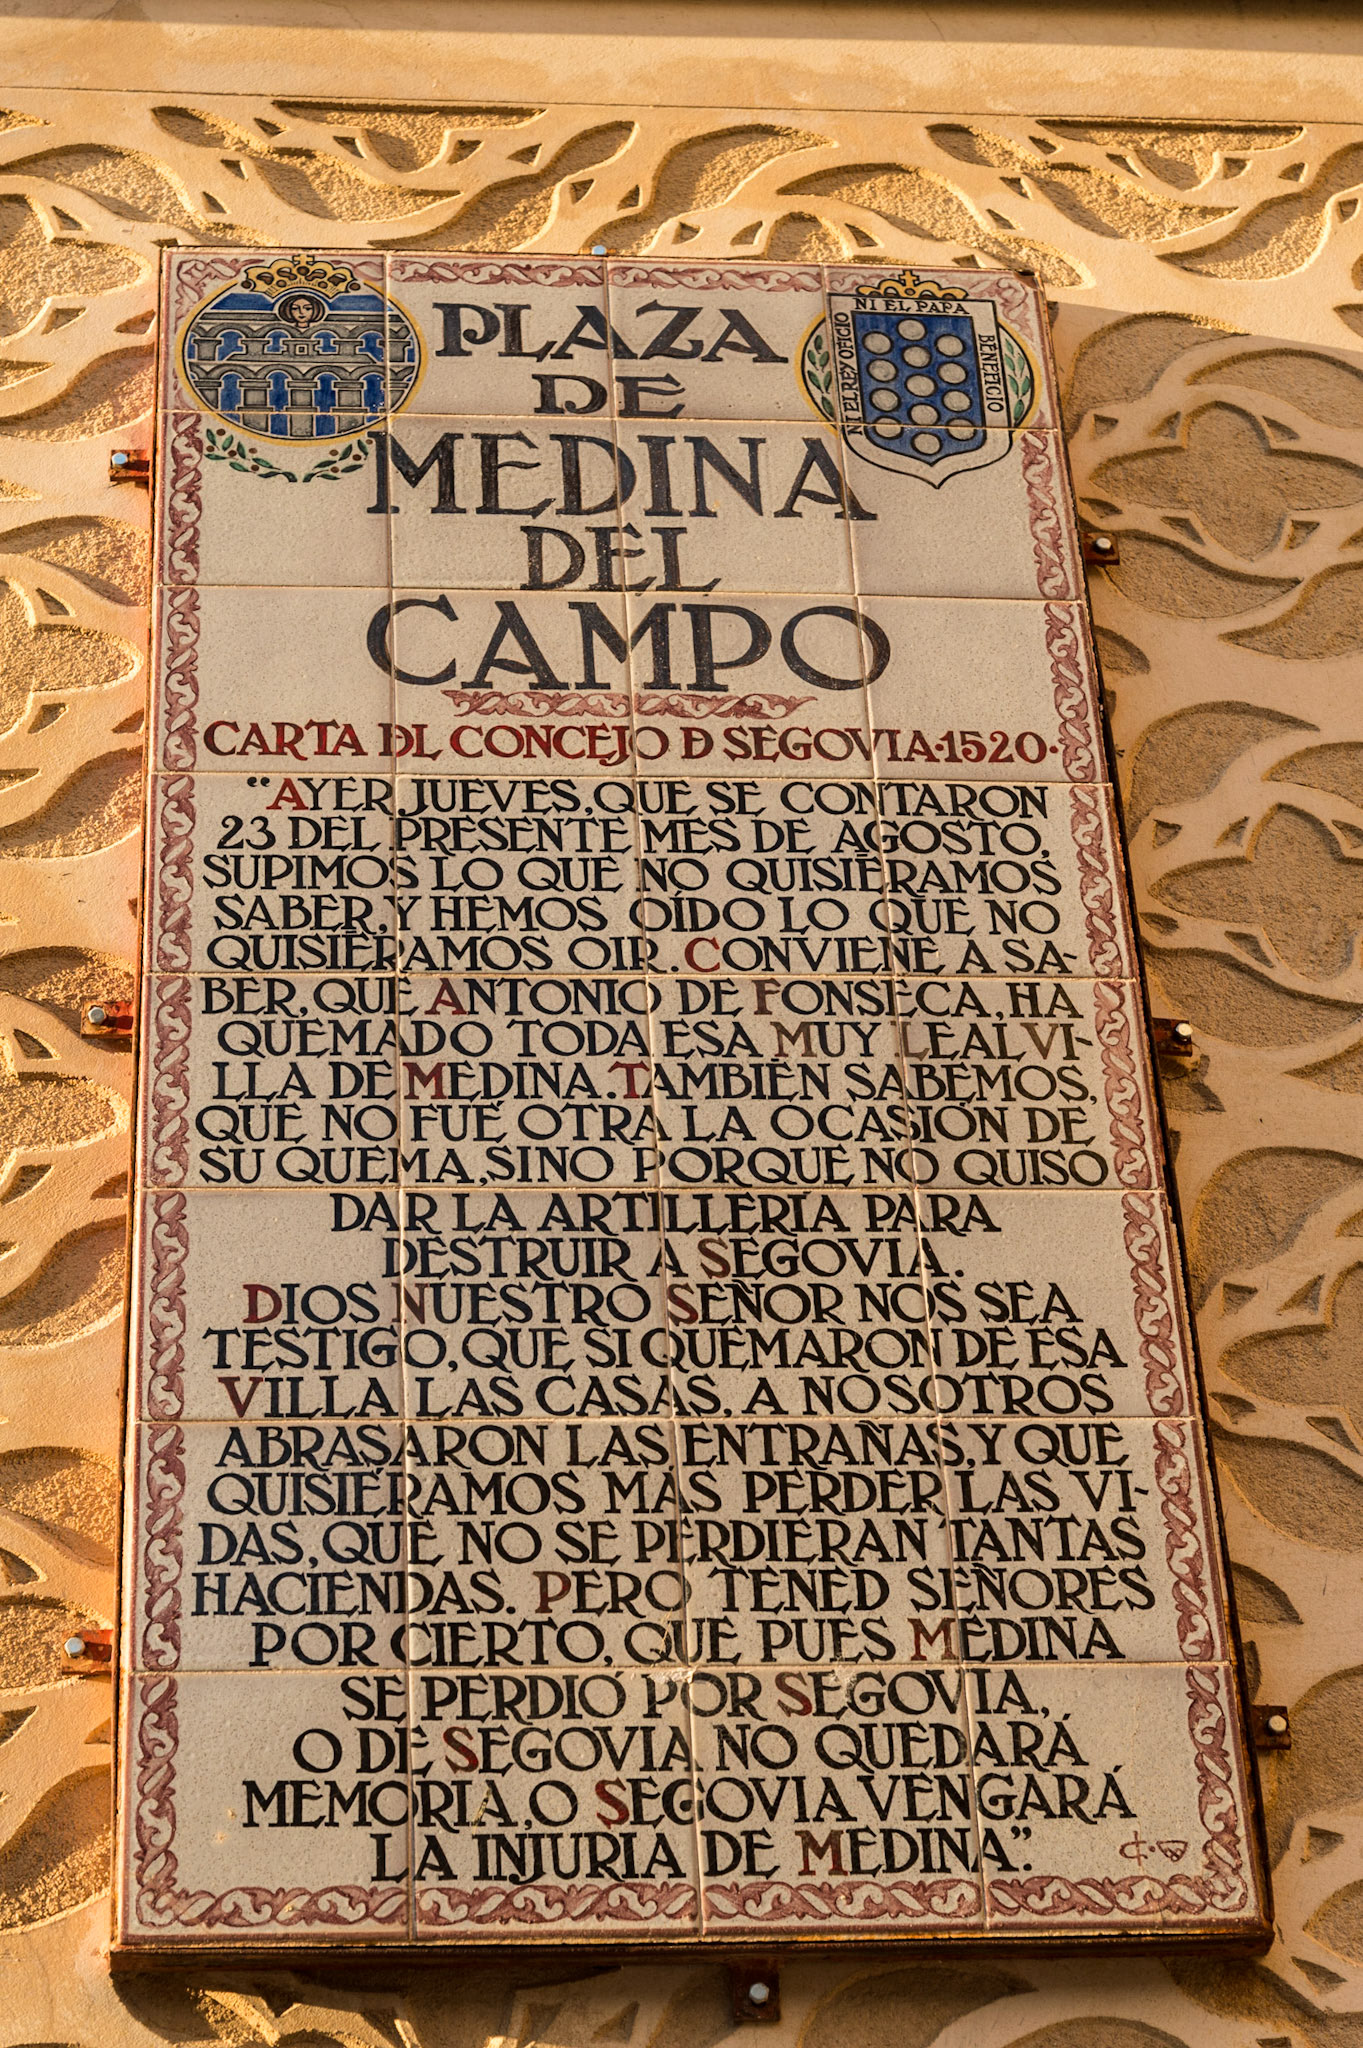 PLAZA
DE
MEDINA
DEL
CAMPO
NI EL PAPA
NI EL REY OFICIO
BENEFICIO
CARTA DL CONCEJO D SEGOVIA·1520·
“AYER, JUEVES, QUE SE CONTARON
23 DEL PRESENTE MES DE AGOSTO,
SUPIMOS LO QUE NO QUISIÉRAMOS
SABER, Y HEMOS OÍDO LO QUE NO
QUISIÉRAMOS OIR. CONVIENE A SA-
BER, QUE ANTONIO DE FONSECA, HA
QUEMADO TODA ESA MUY LEAL VI-
LLA DE MEDINA. TAMBIÉN SABEMOS,
QUE NO FUÉ OTRA LA OCASIÓN DE
SU QUEMA, SINO PORQUE NO QUISO
DAR LA ARTILLERÍA PARA
DESTRUIR A SEGOVIA.
DIOS NUESTRO SEÑOR NOS SEA
TESTIGO, QUE SI QUEMARON DE ESA
VILLA LAS CASAS, A NOSOTROS
ABRASARON LAS ENTRAÑAS, Y QUE
QUISIÉRAMOS MÁS PERDER LAS VI-
DAS, QUE NO SE PERDIERAN TANTAS
HACIENDAS. PERO TENED SEÑORES
POR CIERTO, QUE PUES MEDINA
SE PERDIÓ POR SEGOVIA,
O DE SEGOVIA NO QUEDARÁ
MEMORIA, O SEGOVIA VENGARÁ
LA INJURIA DE MEDINA”.